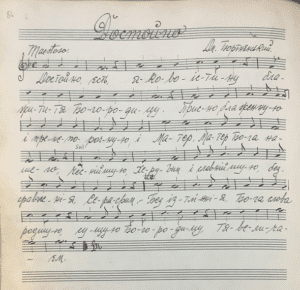 Достойно
Maestoso Дм. Бортнянський
Достойно, єсть я-ко во-іс-ти-ну бла-
жи-ти Тя Бо-го-ро-ди-цу. Присно блаженную
і пре-не-по-роч-ную, і Ма-тер, Матер Бо-га на-
ше-го. Чес-нійшую Хе-ру-вим і славній-шую, без
сравне-ні-я Се-ра-фим, без із-тлі-ні-я Бо-га слова
родшую су-щую Бо-го-ро-ди-цу, Тя ве-ли-ча-
- єм.